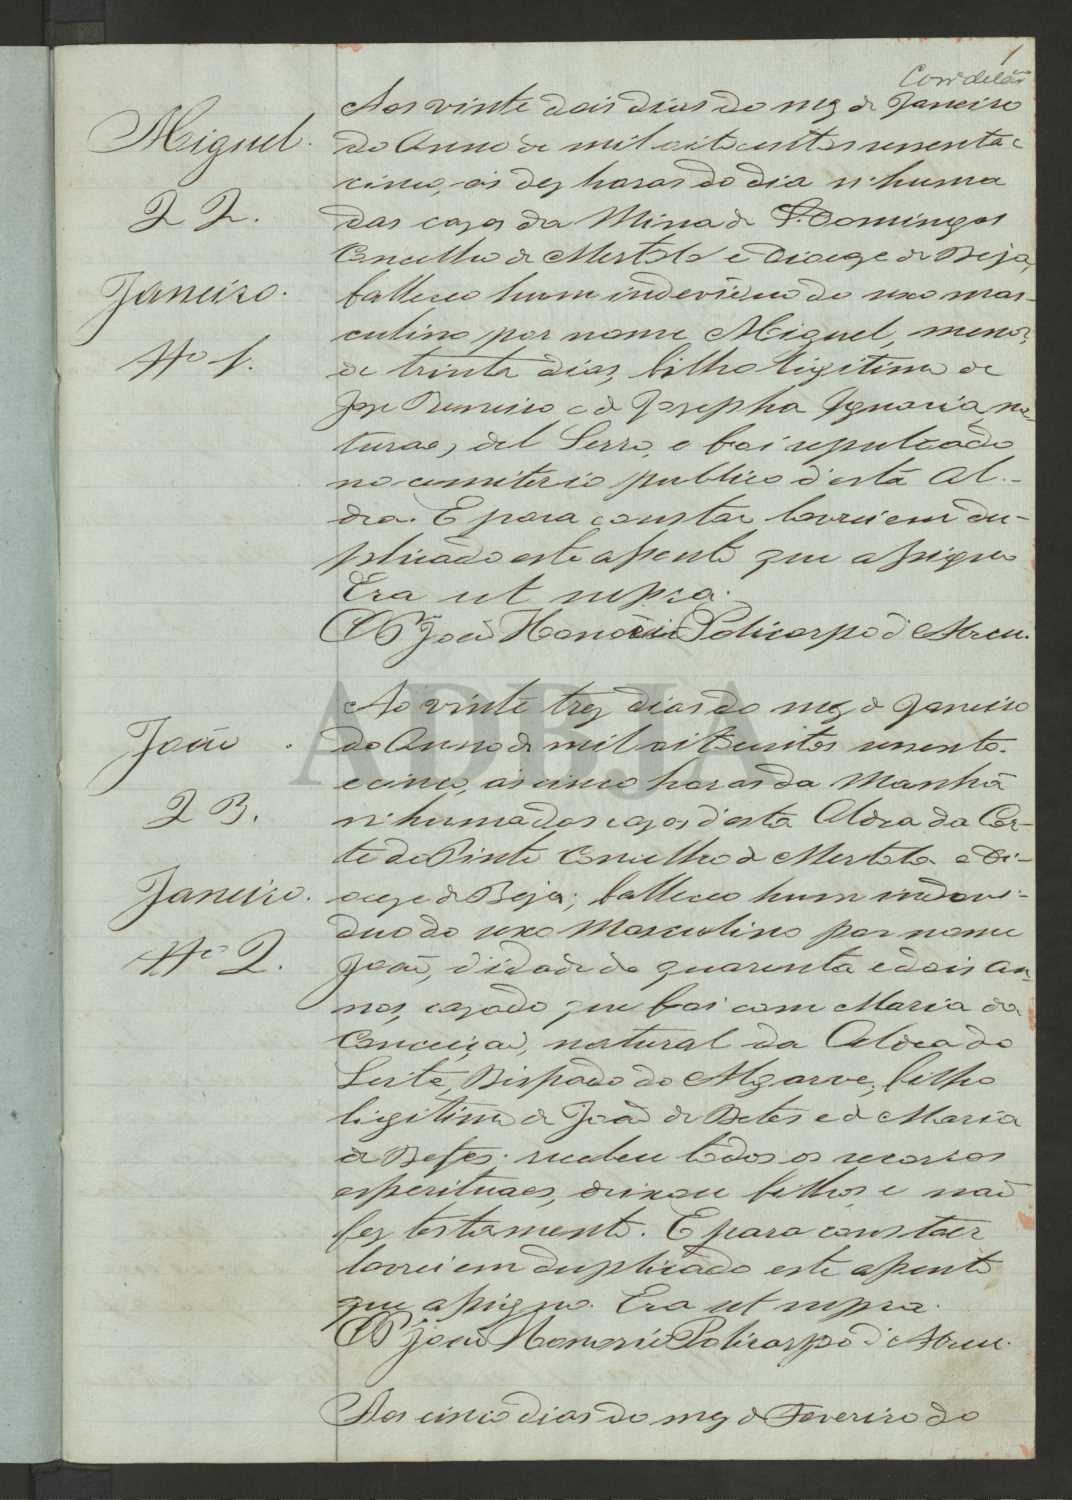 1
Miguel.
22.
Janeiro.
Nº 1.
Aos vinte dois dias do mez de Janeiro
do Anno de mil oito centos sessenta e
cinco, ás dez horas do dia n'huma
das cazas da Mina de S. Domingos
Concelho de Mertola e Dioceze de Beja,
falleceo hum individuo do sexo mas-
culino por nome Miguel, menor,
de trinta dias, filho legitimo de
Joze e de Josepha Ignacia, na-
turaes, del Serro, e foi sepultado
no cemiterio publico d'esta Al-
dea. E para constar lavrei em du-
plicado este assento que assigno
Era ut supra.
O P João Honorio Policarpo d'Abreu.
João.
23.
Janeiro.
Nº 2.
Ao vinte trez dias do mez de Janeiro
do Anno de mil oitocentos sessenta
e cinco, ás cinco horas da Manhã
n'huma das cazas d'esta Aldea da Cor-
te do Pinto Concelho de Mertola e Di-
oceze de Beja; falleceo hum indevi-
duo do sexo Masculino por nome
João, d'idade de quarenta e dois an-
nos, cazado que foi com Maria da
Conceição, natural da Aldea do
Bispado do Algarve, filho
ligitimo de João de e de Maria
de recebeu todos os socorros
esperituaes, deixou filhos e não
fez testamento. E para constar
lavrei em duplicado este assento
que assigno. Era ut supra.
O P João Honorio Policarpo d'Abreu.
Aos cinco dias do mez de Fevereiro do
ADBJA